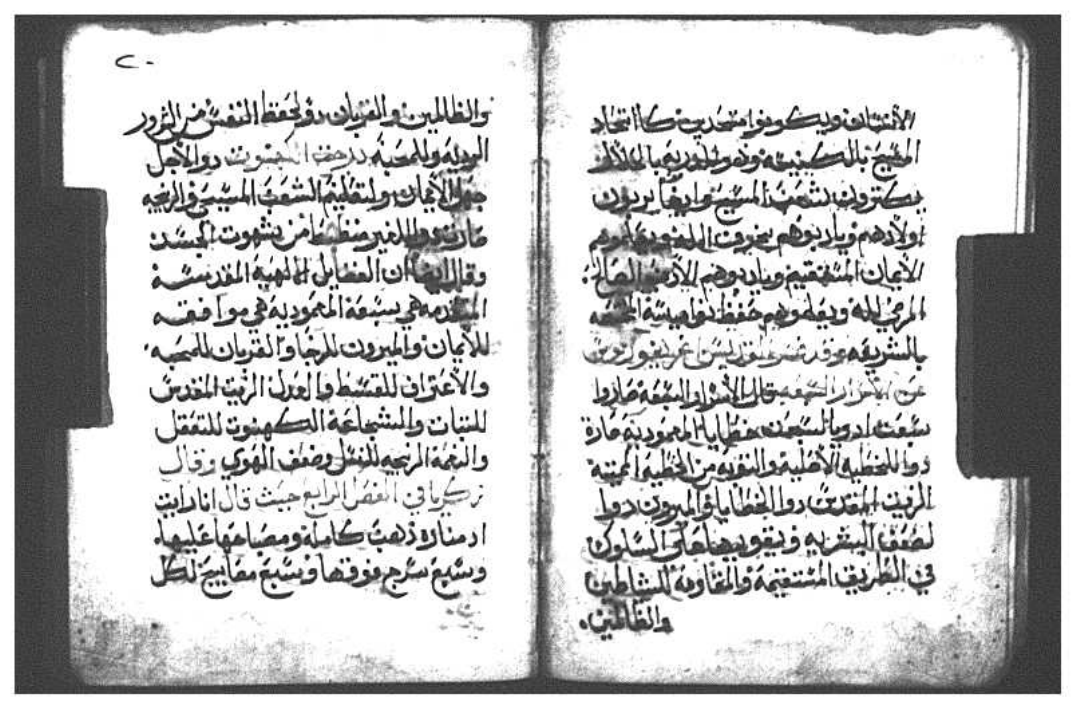 الأثنان ويكونوا متحدين كما اتحاد
المسيح بالكنيسه وذو بالأكثر
يكترون شعب المسيح وايضا يربون
اولادهم ويادبوهم بخوف الله ويعلموهم
الأيمان المستقيم ويادبوهم الأدب الصالح
المرضي لله ويعلموهم حفظ نواميسه
بالشريفه
عن الأسرار السبعه قال الأسرار السبعه صاروا
سبعت ادويا لسبعت خطايا المعموديه صارة
دوا للخطيه الأصليه والتوبه من الخطيه المميته
الزيت المقدس دوا الخطايا والميرون دوا
لضعف البشريه وتقويها على السلوك
في الطريق المستقيمة والمقاومة للشياطين
والظالمين.
٢٠
والظالمين والقربان دوا لحفظ النفس من الشرور
الرديه وللمحبه درجت الكهنوت دوا لأجل
جهل الأيمان ولتعليم الشعب المسيحي والزيجه
صارت دوا من شهوت الجسد
وقال ايضا ان الفضايل الالهيه المقدسة
المعموديه هي موافقه
للأيمان والميرون للرجا والقربان للمحبه
والأعتراف للقسط والعدل الزيت المقدس
للثبات والشجاعة الكهنوت للتعقل
والنعمة الزيجه للنسل وضعف الهوي وقال
زكريا في الفصل الرابع حيث قال انا رايت
اد منارة ذهب كاملة ومصباحها عليها
وسبع سرج فوقها وسبع مفاتيح لكل